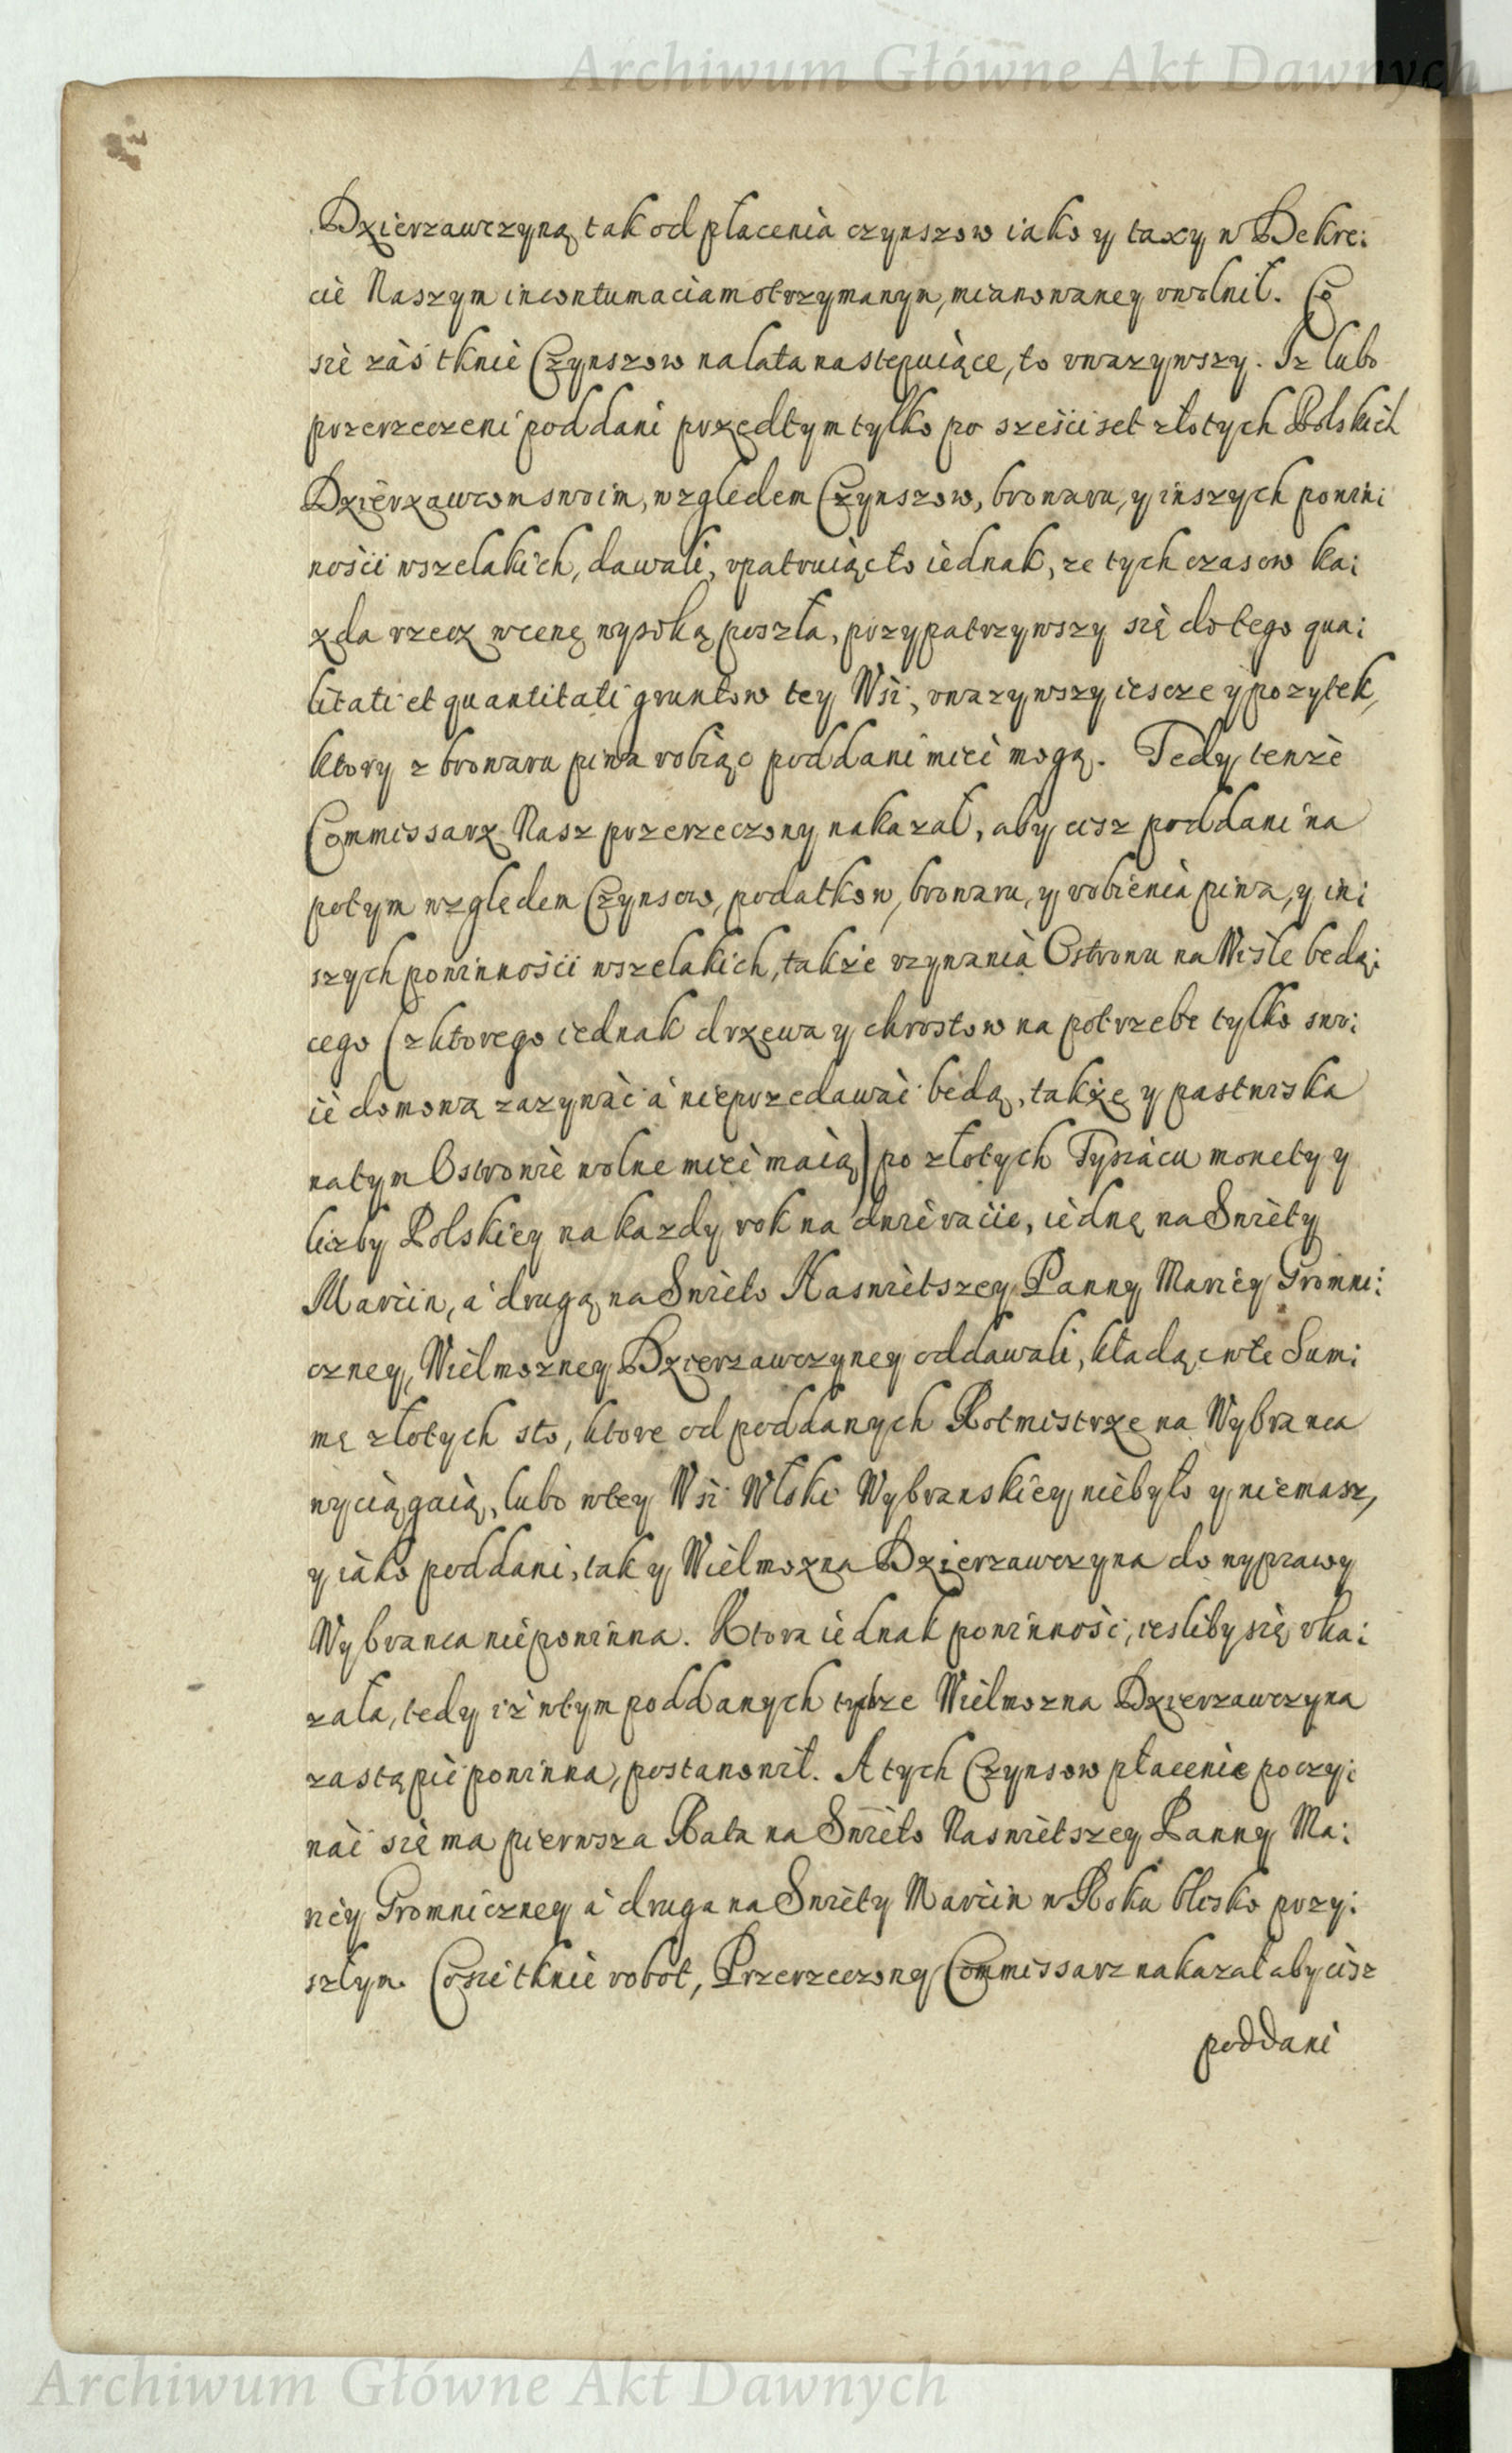 Archiwum Główne Akt Dawnych
Dzierzawczyną tak od płacenia czynszow iako y taxy w Dekre:
cie Naszym in contumaciam otrzymanym, mianowaney vwolnił. Co
sie zaś tknie Czynszow na lata nastepuiące, to vwazywszy. Iz lubo
przerzeczeni poddani przedtym tylko po sześciset złotych Polskich
Dzierzawcom swoim, wzgledem Czynszow, browaru, y inszych powin:
ności wszelakich, dawali, vpatruiąc to iednak, ze tych czasow ka:
zda rzecz w cenę wysoką poszła, przypatrzywszy się do tego qua:
litati et quantitati gruntow tey Wsi, vwazywszy iescze y pozytek,
ktory z browaru piwa robiąc poddani mieć mogą. Tedy tenże
Commissarz Nasz przerzeczony nakazał, aby cisz poddani na
potym względem Czynsow, podatkow, browaru, y robienia piwa, y in:
szych powinności wszelakich, także vzywania Ostrowu na Wiśle będą:
cego (z ktorego iednak drzewa y chrostow na potrzebe tylko swo:
ię domową zazywać a nieprzedawać będą, także y pastwiska
na tym Ostrowie wolne mieć maią) po złotych Tysiącu monety y
liczby Polskiey na kazdy rok na dwie racie, iednę na Swięty
Marcin, a drugą na Swięto Naswiętszey Panny Mariey Gromni:
czney, Wielmozney Dzierzawczyney oddawali, kładąc w tę Sum:
mę złotych sto, ktore od poddanych Rotmistrze na Wybranca
wyciągaią, lubo w tey Wsi Włoki Wybranskiey niebyło y niemasz,
y iako poddani, tak y Wielmozna Dzierzawczyna do wyprawy
Wybranca niepowinna. Ktora iednak powinność, iesliby się vka:
zała, tedy iż w tym poddanych tychze Wielmozna Dzierzawczyna
zastąpić powinna, postanowił. A tych Czynsow płacenie poczy:
nać się ma pierwsza Rata na Swięto Naswiętszey Panny Ma:
riey Gromniczney a druga na Swięty Marcin w Roku blisko przy:
szłym. Co sie tknie robot, Przerzeczony Commissarz nakazał aby cisz
poddani
Archiwum Główne Akt Dawnych